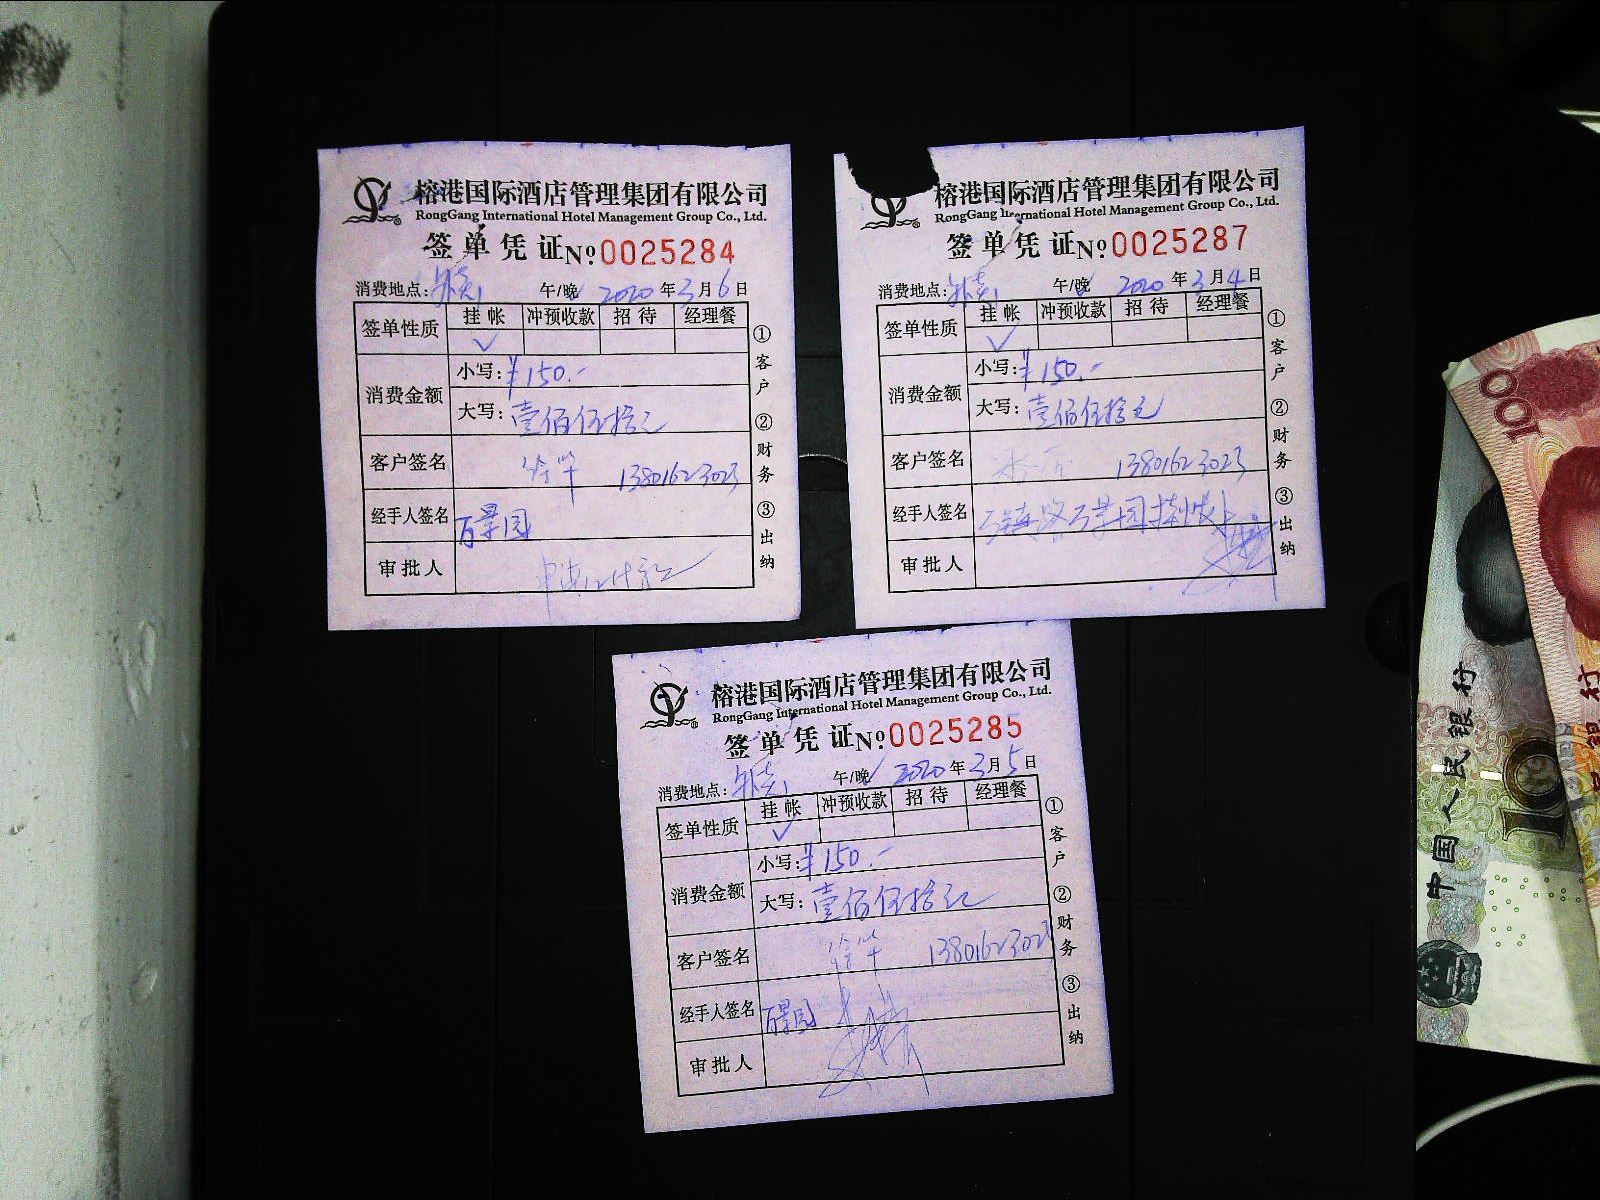 榕港国际酒店管理集团有限公司
RongGang International Hotel Management Group Co., Ltd.
签单凭证 №0025284
消费地点: 外卖 午/晚 2020年3月6日
签单性质 挂帐 冲预收款 招待 经理餐
✓
消费金额 小写: ¥150.-
大写: 壹佰伍拾元
客户签名 13801623023
经手人签名 百景园
审批人
①客户 ②财务 ③出纳
榕港国际酒店管理集团有限公司
RongGang International Hotel Management Group Co., Ltd.
签单凭证 №0025287
消费地点: 外卖 午/晚 2020年3月4日
签单性质 挂帐 冲预收款 招待 经理餐
✓
消费金额 小写: ¥150.-
大写: 壹佰伍拾元
客户签名 13801623023
经手人签名
审批人
①客户 ②财务 ③出纳
榕港国际酒店管理集团有限公司
RongGang International Hotel Management Group Co., Ltd.
签单凭证 №0025285
消费地点: 外卖 午/晚 2020年3月5日
签单性质 挂帐 冲预收款 招待 经理餐
✓
消费金额 小写: ¥150.-
大写: 壹佰伍拾元
客户签名 13801623023
经手人签名 百景园
审批人
①客户 ②财务 ③出纳
100
中国人民银行
10